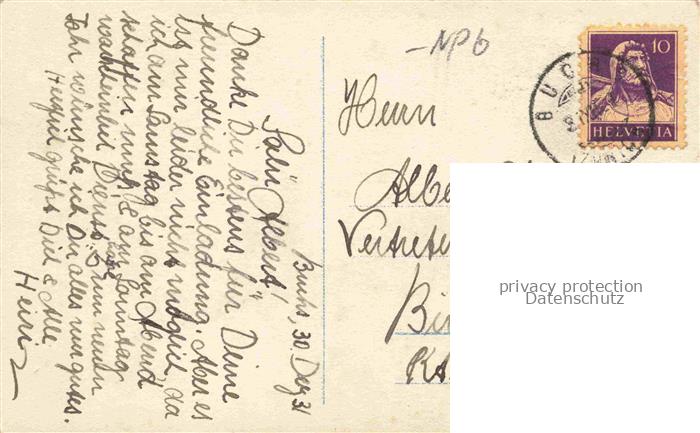 Buchs, 30. Dez 31
Salü Albert!
Danke Dir bestens für Deine
freundliche Einladung. Aber es
ist mir leider nicht möglich, da
ich am Samstag bis am Abend
schaffen muss & am Sonntag
Dienst. Zum neuen
Jahr wünsche ich Dir alles nur gutes.
Herzlich grüsst Dich & Alle
Heiri
-NP6
10
HELVETIA
BUCHS
Herrn
Albe
Vertrete
Bi
Kt.
privacy protection
Datenschutz